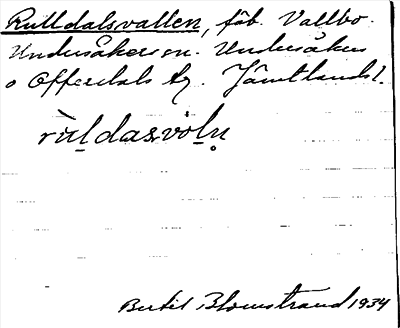 Rulldalsvallen, fäb. Vallbo.
Undersåkers sn. Undersåkers
o Offerdals tg. Jämtlands l.
rùḻdasvòḻn̥
Bertil Blomstrand 1934